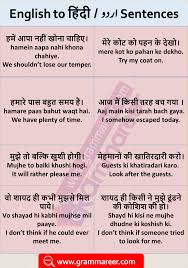 English to हिंदी / اردو Sentences
हमे आपा नही खोना चाहिए।
hamein aapa nahi khona
chahiye.
We shouldn't lose our temper.
मेरे कोट को पहन के देखो।
mere kot ko pahan ke dekho.
Try my coat on.
हमारे पास बहुत समय है।
hamare paas bahut wagt hai.
We have plenty of time.
आज में किसी तरह बच गया ।
Aaj main kisi tarah bach gaya.
I somehow escaped today.
मुझे तो बल्कि खुशी होगी।
Mujhe to balki khushi hogi.
It will rather please me.
मेहमानों की खातिरदारी करो।
Guests ki khatirdari karo.
Look after the guests.
वो शायद ही कभी मुझसे मिल
पाये।
Vo shayad hi kabhi mujhse mil
paaye.
I don't think if he could ever
meet me.
शायद ही किसी ने मुझे ढूंढने
की कोशिश की हो।
Shayd hi kisi ne mujhe
dhudne ki koshish ki.
I don't think if someone tried
to look for me.
www.grammareer.com